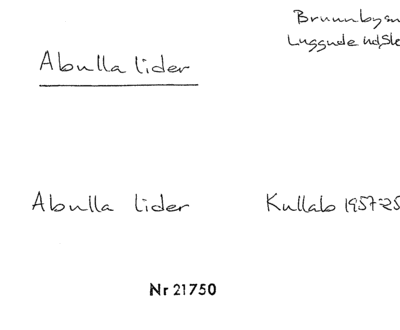 Brunnby sn
Luggude hd, Sk
Abulla lider
Abulla lider Kullab 1957:25
Nr 21750